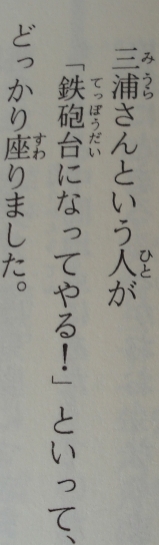 三浦さんという人が
「鉄砲台になってやる！」といって、
どっかり座りました。